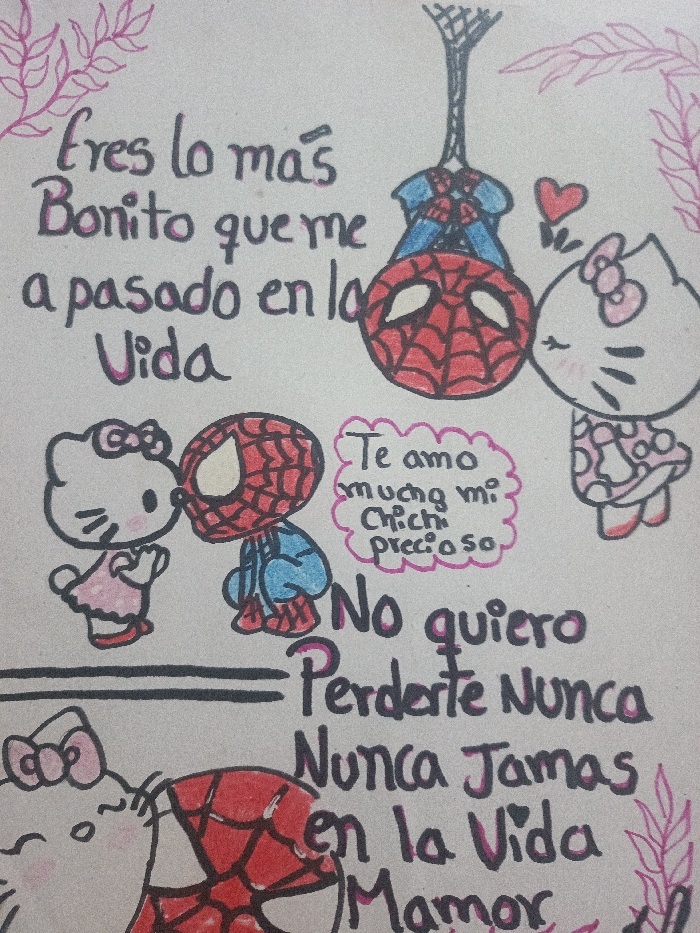 Eres lo más
Bonito que me
a pasado en la
Vida
Te amo
mucho mi
chichi
precioso
No quiero
Perderte Nunca
Nunca Jamas
en la Vida
Mamor